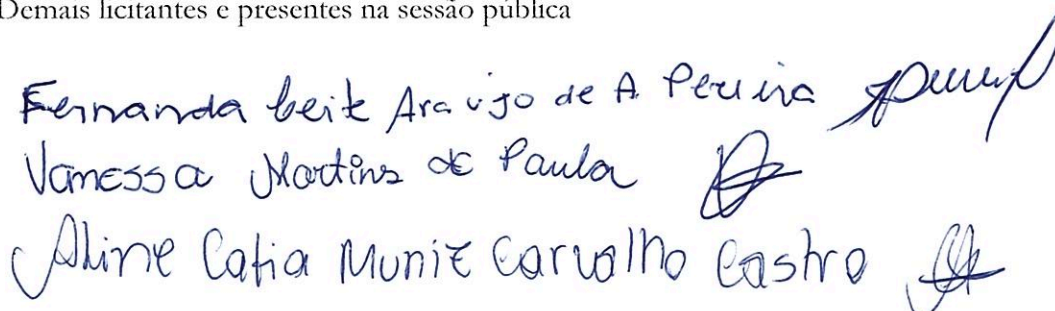 Demais licitantes e presentes na sessão pública
Fernanda Leite Araujo de A Pereira
Vanessa Martins de Paula
Aline Catia Muniz Carvalho Castro